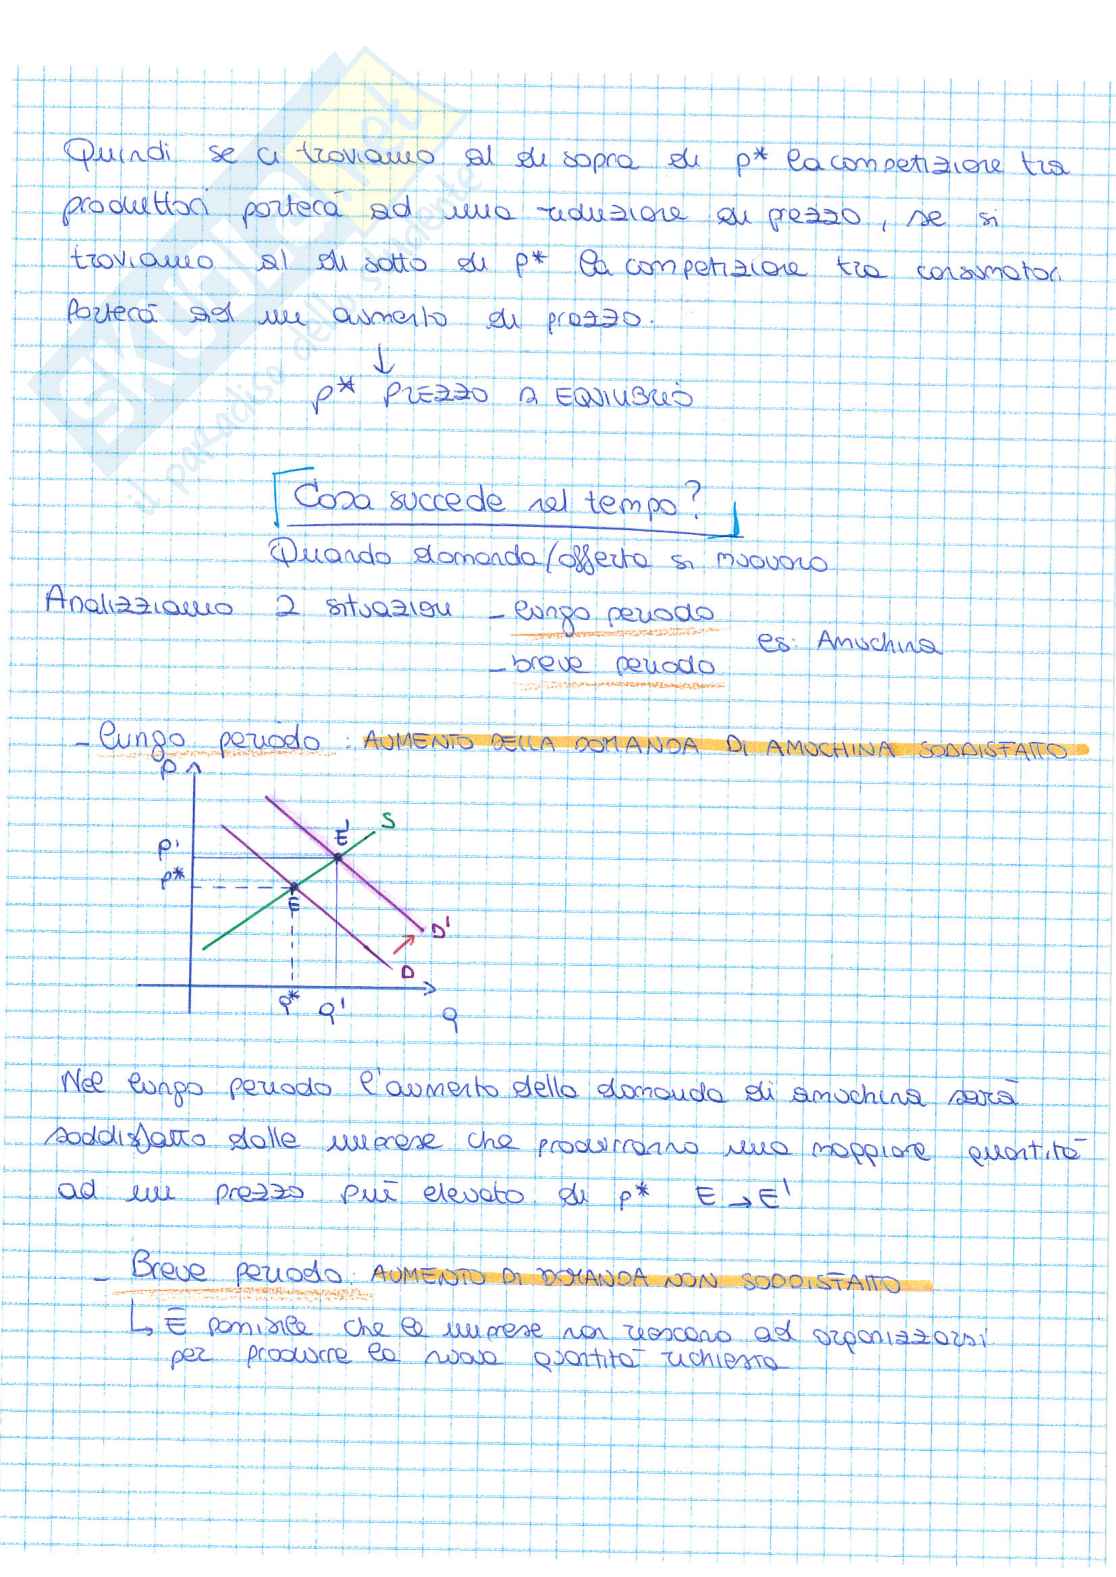 Quindi se ci troviamo al di sopra di p* la competizione tra
produttori porterà ad una riduzione di prezzo, se si
troviamo al di sotto di p* la competizione tra consumatori
Porterà ad un aumento di prezzo.
↓
p* PREZZO DI EQUILIBRIO
Cosa succede nel tempo?
Quando domanda/offerta si muovono
Analizziamo 2 situazioni - lungo periodo
es: Amuchina
- breve periodo
- lungo periodo: AUMENTO DELLA DOMANDA DI AMUCHINA SODDISFATTO
P
E' S
P'
P*
E
D'
D
Q* Q' Q
Nel lungo periodo l'aumento della domanda di amuchina sarà
soddisfatto dalle imprese che produrranno una maggiore quantità
ad un prezzo più elevato di p* E → E'
- Breve periodo: AUMENTO DI DOMANDA NON SODDISFATTO
↳ È possibile che le imprese non riescano ad organizzarsi
per produrre la nuova quantità richiesta
SKUOLA.net
il paradiso dello studente